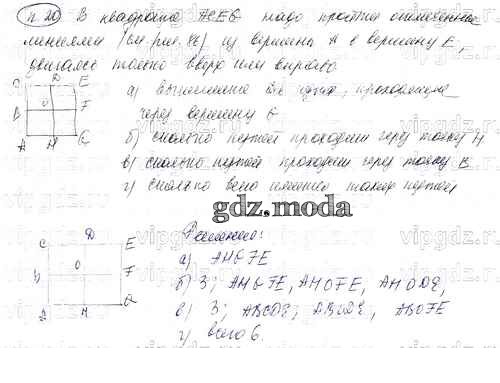 п. 20) В квадрате АСЕG надо пройти отмеченными
линиями (см. рис. 48) из вершины А в вершину Е,
двигаясь только вверх или вправо.
а) выпишите все пути, проходящие
через вершину G
б) сколько путей проходит через точку H
в) сколько путей проходит через точку B
г) сколько всего имеется таких путей
C D E
B O F
A H G
gdz.moda
Решение:
а) AHGFE
б) 3; AHGFE, AHOFE, AHODE,
в) 3; ABCDE; ABODE, ABOFE
г) всего 6.
C D E
b O F
A H G
vipgdz.ru